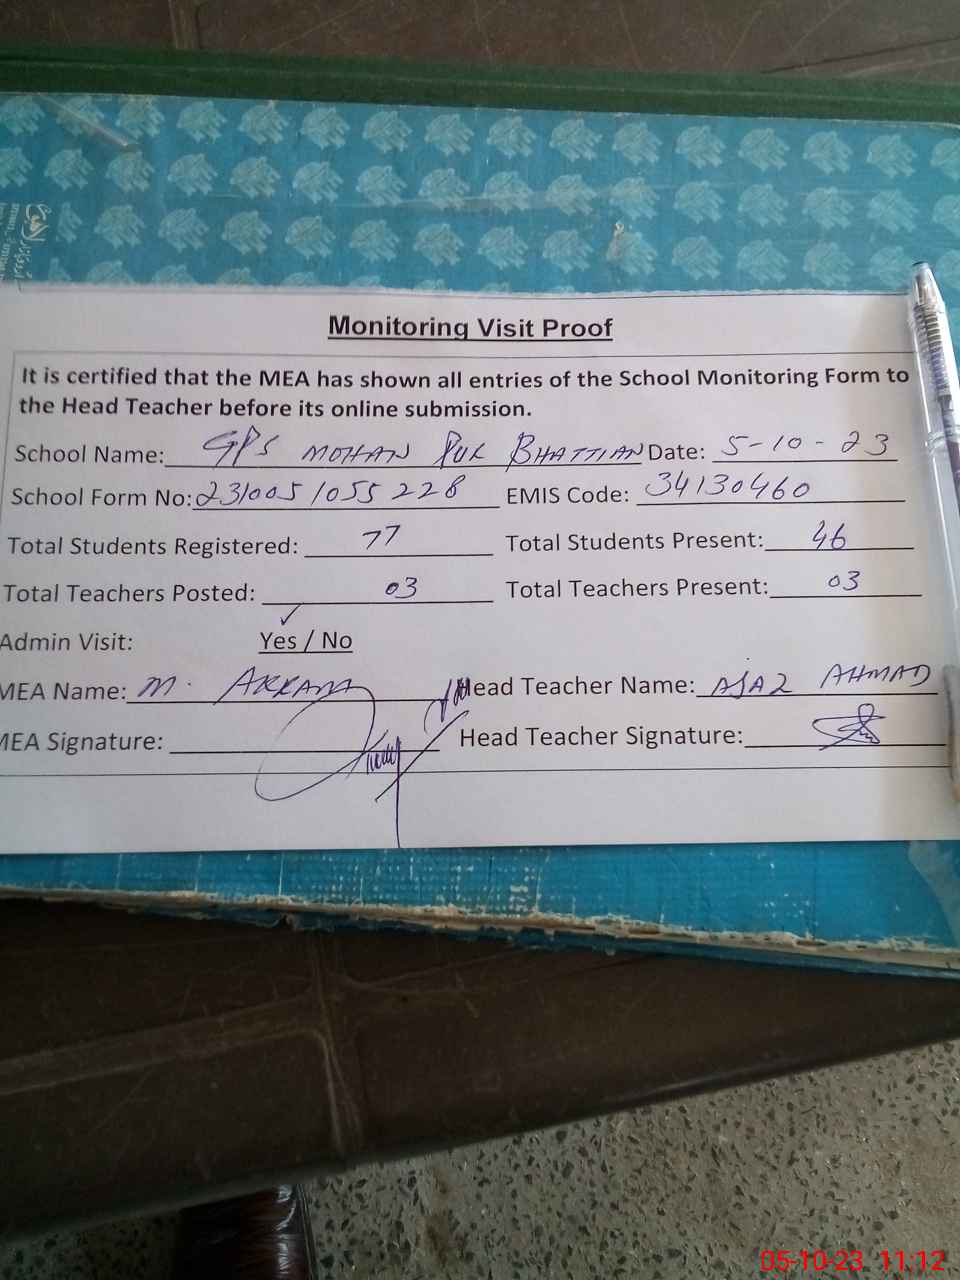 Monitoring Visit Proof
It is certified that the MEA has shown all entries of the School Monitoring Form to
the Head Teacher before its online submission.
School Name: GPS MOHAN PUR BHATTIAN Date: 5-10-23
School Form No: 231005/055228 EMIS Code: 34130460
Total Students Registered: 77 Total Students Present: 46
Total Teachers Posted: 03 Total Teachers Present: 03
Admin Visit: Yes / No
MEA Name: M. AKRAM Head Teacher Name: AJAZ AHMAD
MEA Signature: Head Teacher Signature:
05-10-23 11:12